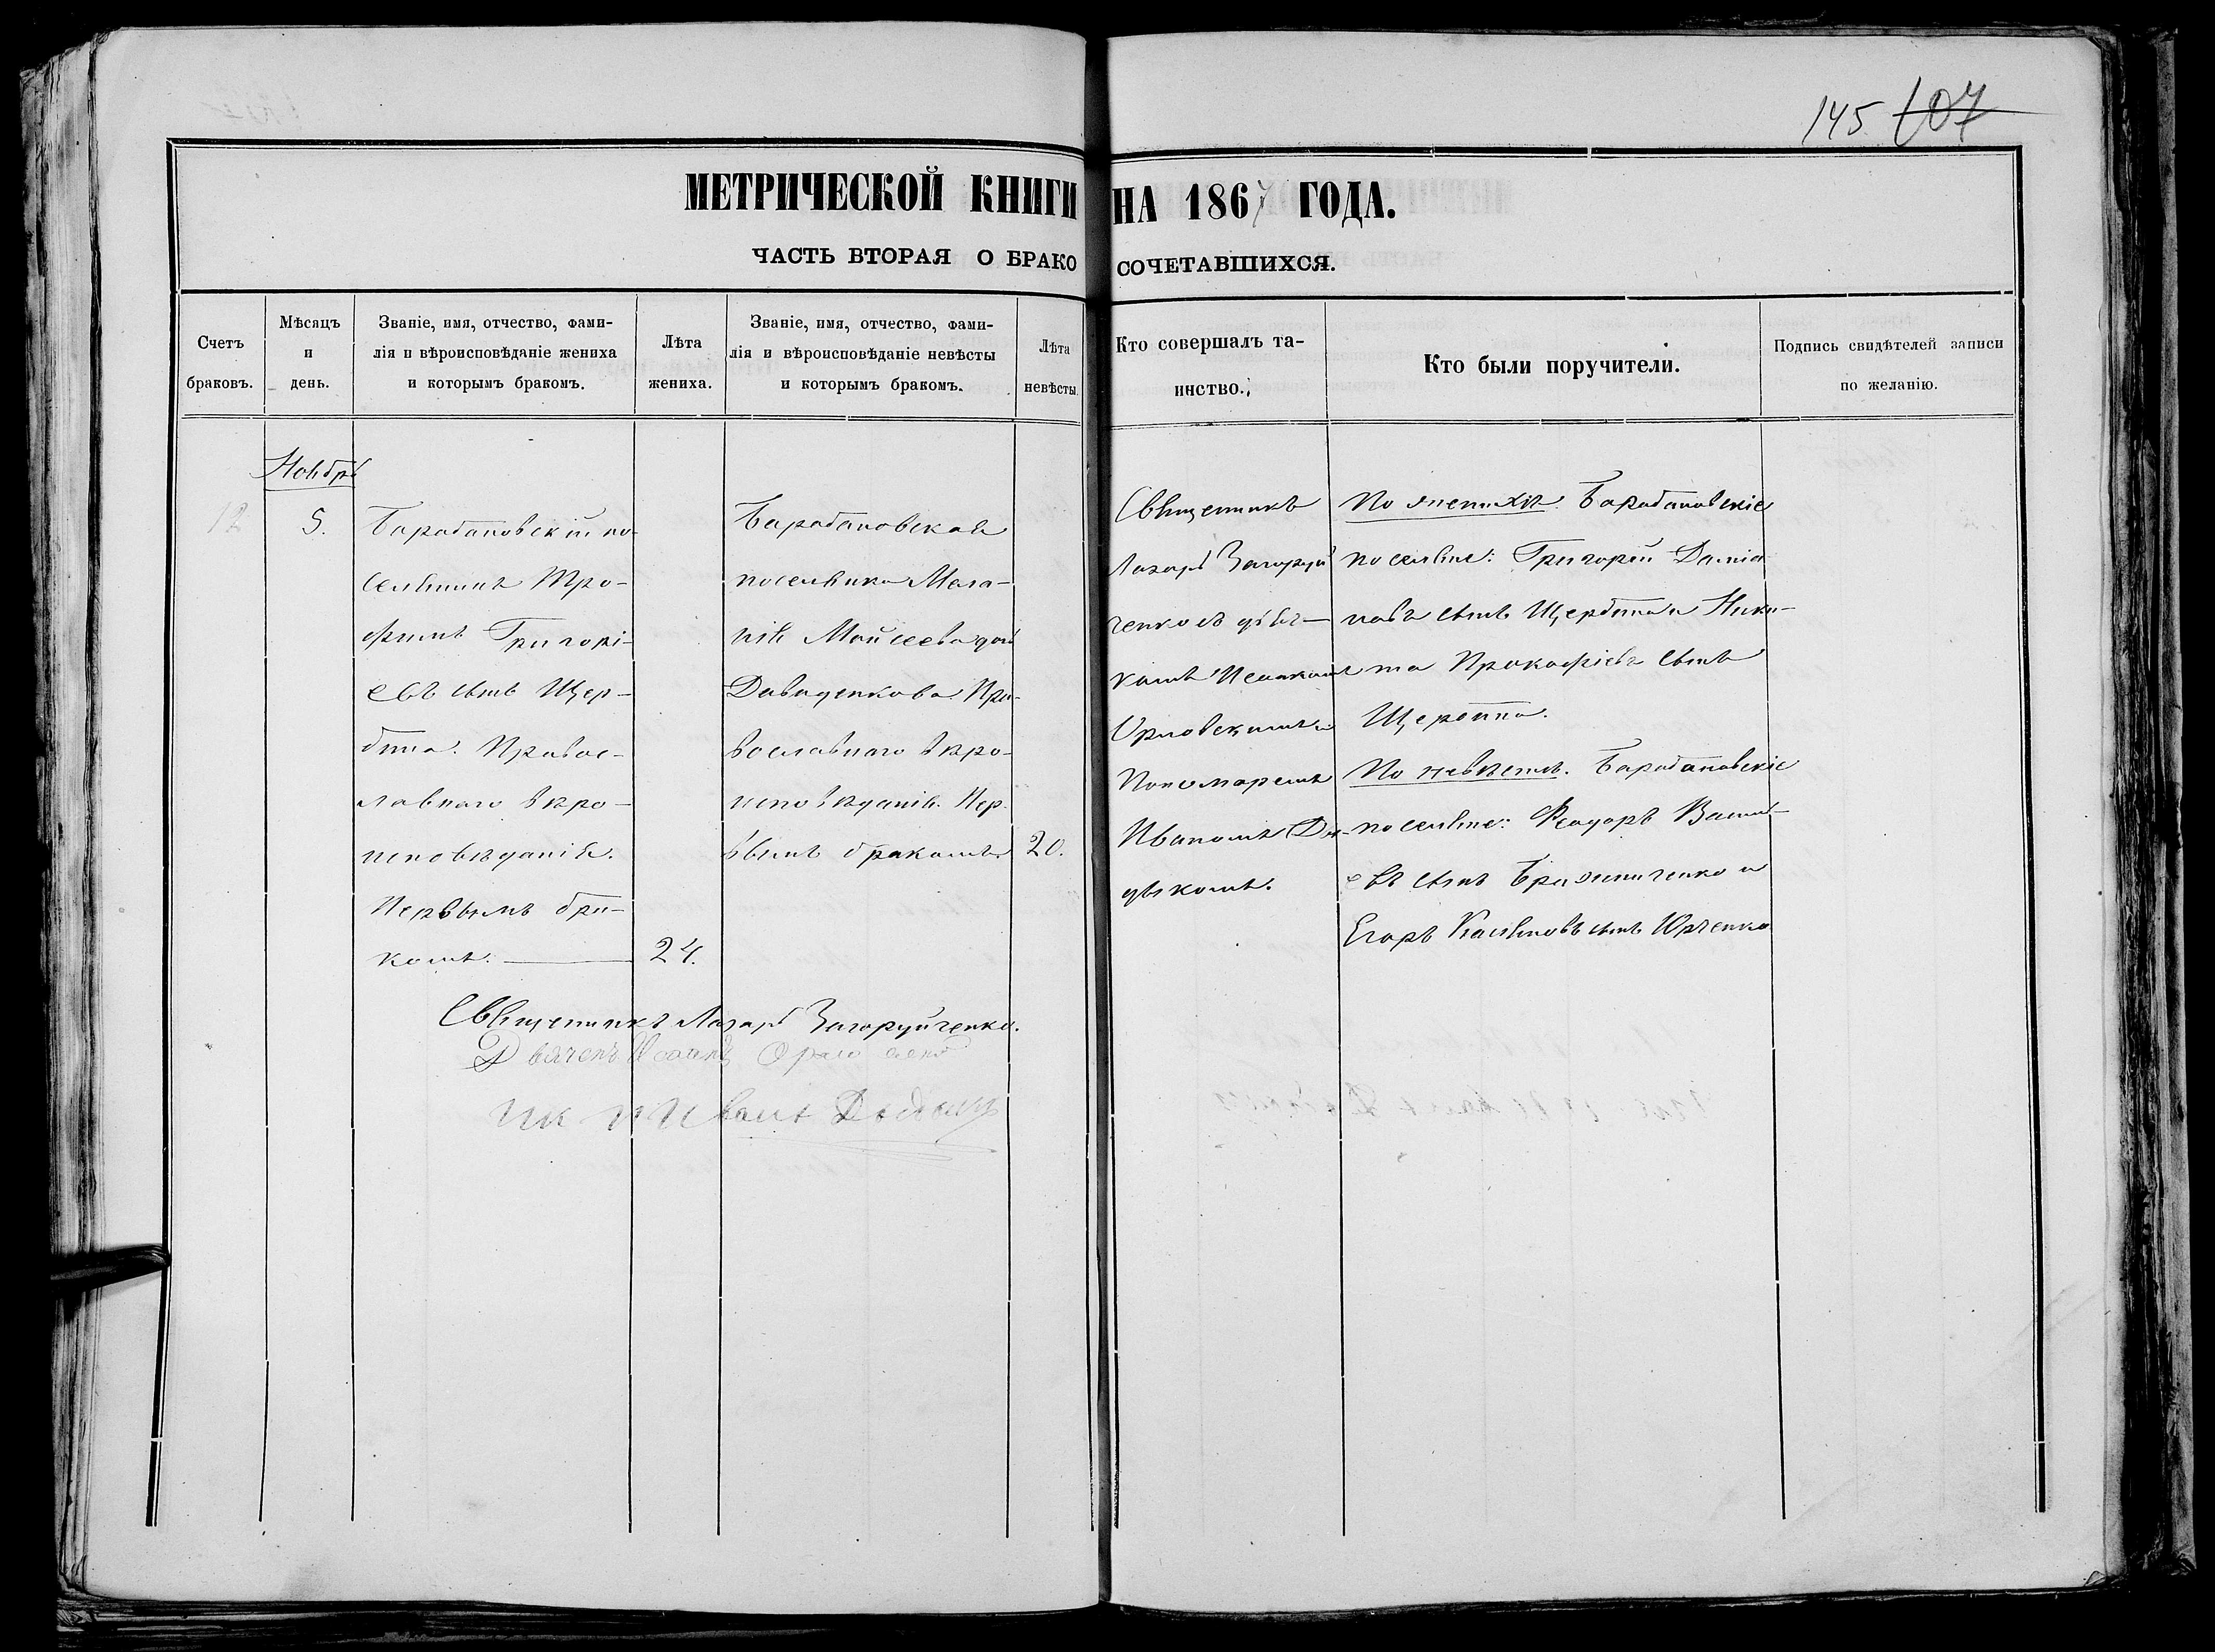 145 107
МЕТРИЧЕСКОЙ КНИГИ НА 1867 ГОДА.
ЧАСТЬ ВТОРАЯ О БРАКОСОЧЕТАВШИХСЯ.
Счетъ браковъ.
Мѣсяцъ и день.
Званіе, имя, отчество, фами-
лія и вѣроисповѣданіе жениха
и которымъ бракомъ.
Лѣта жениха.
Званіе, имя, отчество, фами-
лія и вѣроисповѣданіе невѣсты
и которымъ бракомъ.
Лѣта невѣсты.
Кто совершалъ та-
инство.
Кто были поручители.
Подпись свидѣтелей записи
по желанію.
Ноябрь
12
5.
Барабановскій по-
селянинъ Тро-
фимъ Григорі-
евъ сынъ Щер-
бина. Правос-
лавнаго вѣро-
исповѣданія.
Первымъ бра-
комъ.
24.
Барабановская
поселянка Мела-
нія Моѵсеева дочь
Давиденкова Пра-
вославнаго вѣро-
исповѣданія. Пер-
вымъ бракомъ
20.
Священникъ
Лазарь Загоруй
ченко съ дьяч-
комъ Исаакомъ
Орловскимъ и
Пономаремъ
Иваномъ Ди-
дыкомъ.
По женихѣ. Барабановскіе
поселяне: Григорій Даміа
новъ сынъ Щербина и Ники-
та Прокофіевъ сынъ
Щербина.
По невѣстѣ. Барабановскіе
поселяне: Феодоръ Васил-
евъ сынъ Бражниченко и
Егоръ Касяновъ сынъ Юрченко
Священникъ Лазарь Загоруйченко.
Дьячекъ Исаакъ Орловскій
Иванъ Дидыкъ